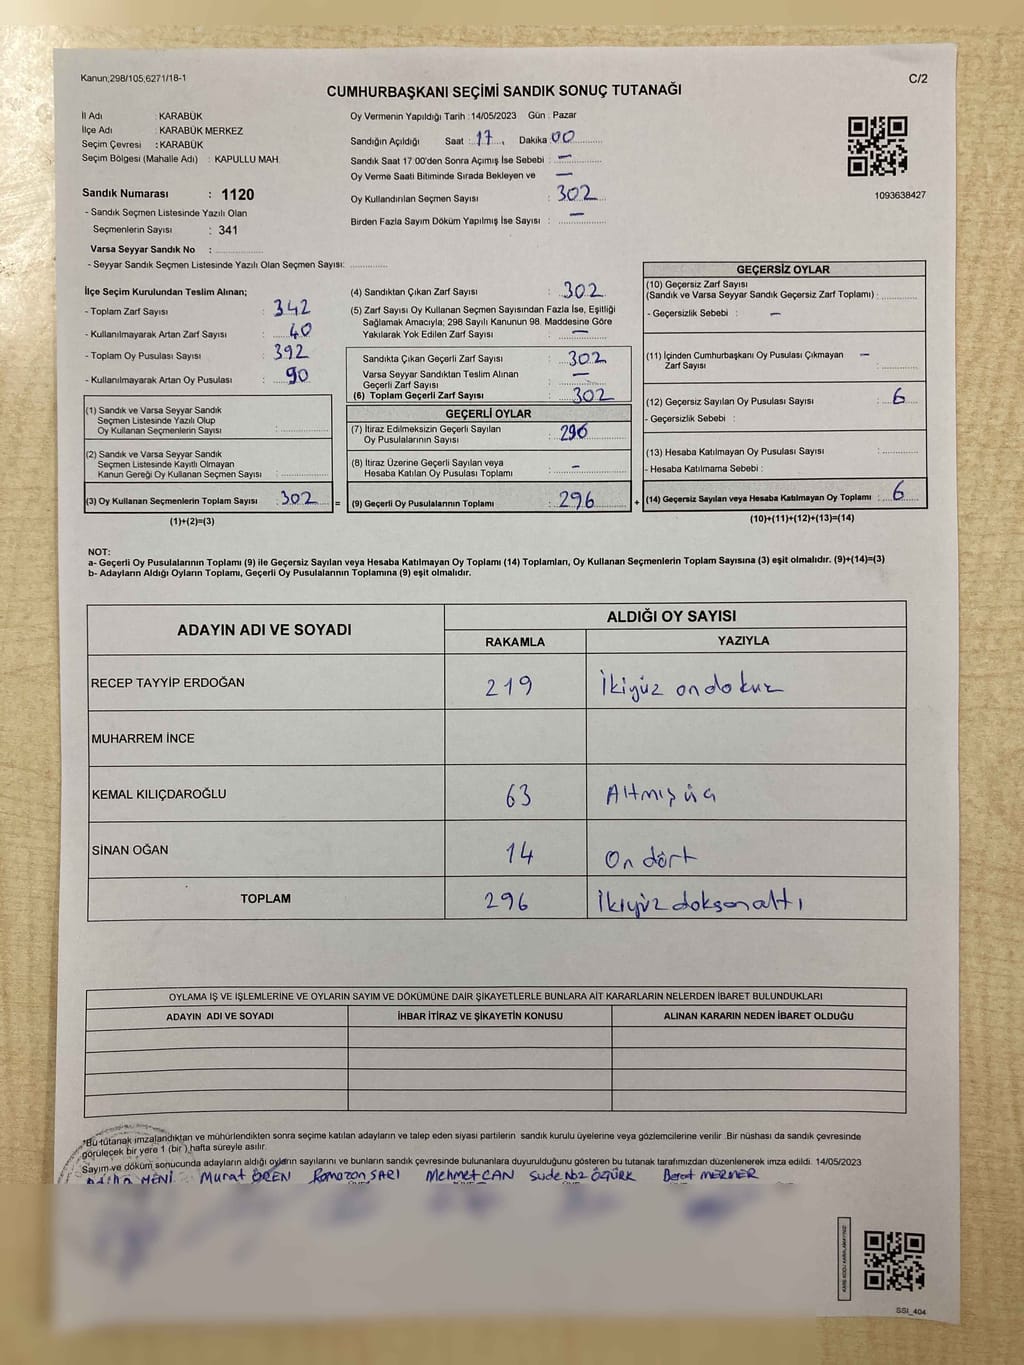 Kanun,298/105,6271/18-1
C/2
CUMHURBAŞKANI SEÇİMİ SANDIK SONUÇ TUTANAĞI
İl Adı : KARABÜK
İlçe Adı : KARABÜK MERKEZ
Seçim Çevresi : KARABÜK
Seçim Bölgesi (Mahalle Adı) : KAPULLU MAH.
Sandık Numarası : 1120
- Sandık Seçmen Listesinde Yazılı Olan
Seçmenlerin Sayısı : 341
Varsa Seyyar Sandık No : ................
- Seyyar Sandık Seçmen Listesinde Yazılı Olan Seçmen Sayısı: ............
Oy Vermenin Yapıldığı Tarih : 14/05/2023 Gün : Pazar
Sandığın Açıldığı Saat : 17 , Dakika 00
Sandık Saat 17 00'den Sonra Açımış İse Sebebi : —
Oy Verme Saati Bitiminde Sırada Bekleyen ve —
Oy Kullandırılan Seçmen Sayısı : 302
Birden Fazla Sayım Döküm Yapılmış İse Sayısı : —
1093638427
İlçe Seçim Kurulundan Teslim Alınan;
- Toplam Zarf Sayısı : 342
- Kullanılmayarak Artan Zarf Sayısı : 40
- Toplam Oy Pusulası Sayısı : 392
- Kullanılmayarak Artan Oy Pusulası : 90
(1) Sandık ve Varsa Seyyar Sandık
Seçmen Listesinde Yazılı Olup
Oy Kullanan Seçmenlerin Sayısı :
(2) Sandık ve Varsa Seyyar Sandık
Seçmen Listesinde Kayıtlı Olmayan
Kanun Gereği Oy Kullanan Seçmen Sayısı :
(3) Oy Kullanan Seçmenlerin Toplam Sayısı : 302
(1)+(2)=(3)
=
(4) Sandıktan Çıkan Zarf Sayısı : 302
(5) Zarf Sayısı Oy Kullanan Seçmen Sayısından Fazla İse, Eşitliği
Sağlamak Amacıyla; 298 Sayılı Kanunun 98. Maddesine Göre
Yakılarak Yok Edilen Zarf Sayısı : —
Sandıkta Çıkan Geçerli Zarf Sayısı : 302
Varsa Seyyar Sandıktan Teslim Alınan —
Geçerli Zarf Sayısı :
(6) Toplam Geçerli Zarf Sayısı : 302
GEÇERLİ OYLAR
(7) İtiraz Edilmeksizin Geçerli Sayılan
Oy Pusulalarının Sayısı : 296
(8) İtiraz Üzerine Geçerli Sayılan veya
Hesaba Katılan Oy Pusulası Toplamı : —
(9) Geçerli Oy Pusulalarının Toplamı : 296
+
GEÇERSİZ OYLAR
(10) Geçersiz Zarf Sayısı
(Sandık ve Varsa Seyyar Sandık Geçersiz Zarf Toplamı) :
- Geçersizlik Sebebi : —
(11) İçinden Cumhurbaşkanı Oy Pusulası Çıkmayan —
Zarf Sayısı :
(12) Geçersiz Sayılan Oy Pusulası Sayısı : 6
- Geçersizlik Sebebi :
(13) Hesaba Katılmayan Oy Pusulası Sayısı :
- Hesaba Katılmama Sebebi :
(14) Geçersiz Sayılan veya Hesaba Katılmayan Oy Toplamı : 6
(10)+(11)+(12)+(13)=(14)
NOT:
a- Geçerli Oy Pusulalarının Toplamı (9) ile Geçersiz Sayılan veya Hesaba Katılmayan Oy Toplamı (14) Toplamları, Oy Kullanan Seçmenlerin Toplam Sayısına (3) eşit olmalıdır. (9)+(14)=(3)
b- Adayların Aldığı Oyların Toplamı, Geçerli Oy Pusulalarının Toplamına (9) eşit olmalıdır.
ADAYIN ADI VE SOYADI ALDIĞI OY SAYISI
RAKAMLA YAZIYLA
RECEP TAYYİP ERDOĞAN 219 İkiyüz ondokuz
MUHARREM İNCE
KEMAL KILIÇDAROĞLU 63 Altmış üç
SİNAN OĞAN 14 On dört
TOPLAM 296 İkiyüz doksanaltı
OYLAMA İŞ VE İŞLEMLERİNE VE OYLARIN SAYIM VE DÖKÜMÜNE DAİR ŞİKAYETLERLE BUNLARA AİT KARARLARIN NELERDEN İBARET BULUNDUKLARI
ADAYIN ADI VE SOYADI İHBAR İTİRAZ VE ŞİKAYETİN KONUSU ALINAN KARARIN NEDEN İBARET OLDUĞU
*Bu tutanak imzalandıktan ve mühürlendikten sonra seçime katılan adayların ve talep eden siyasi partilerin sandık kurulu üyelerine veya gözlemcilerine verilir. Bir nüshası da sandık çevresinde
görülecek bir yere 1 (bir ) hafta süreyle asılır.
Sayım ve döküm sonucunda adayların aldığı oyların sayılarını ve bunların sandık çevresinde bulunanlara duyurulduğunu gösteren bu tutanak tarafımızdan düzenlenerek imza edildi. 14/05/2023
Murat ÖREN Ramazan SARI Mehmet CAN Sude Naz ÖZTÜRK Berat MERMER
SSI_404